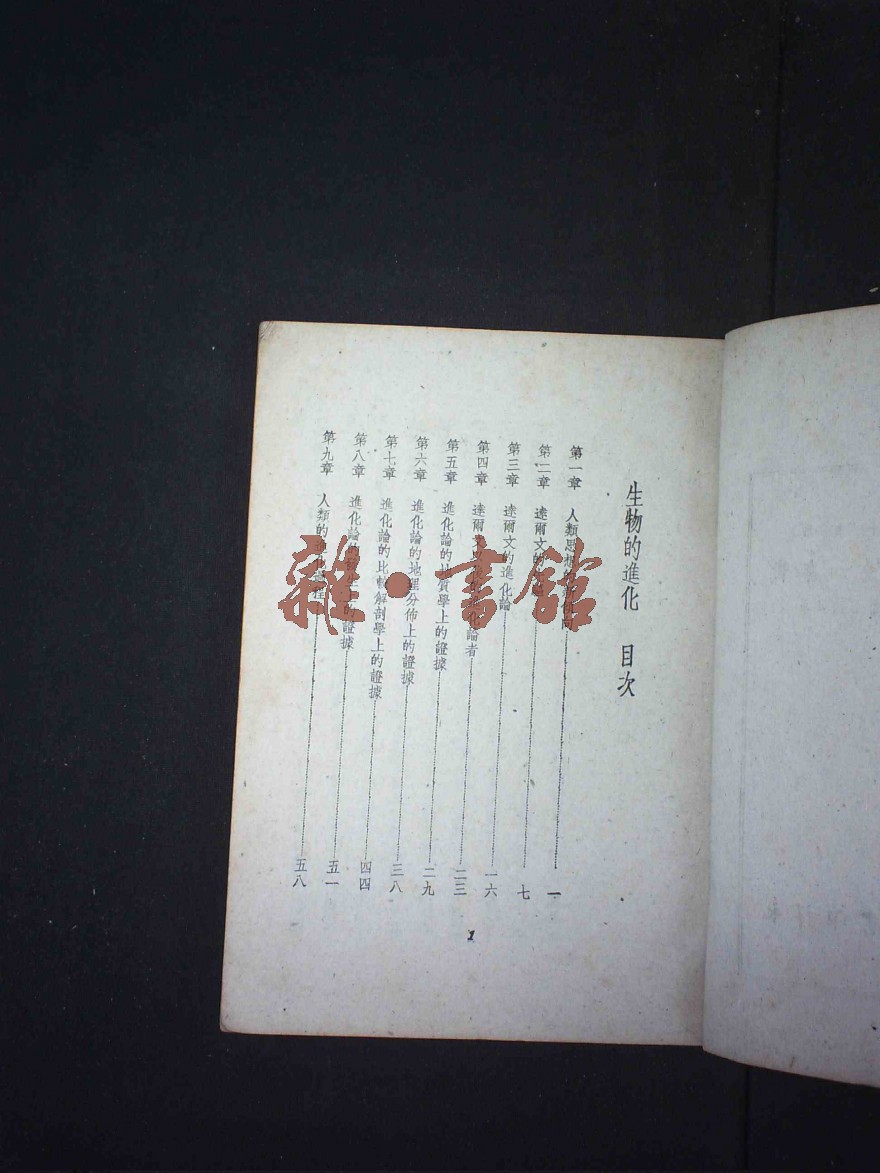 生物的進化 目次
第一章 人類思想的新傾向 一
第二章 達爾文的 七
第三章 達爾文的進化論 一六
第四章 達爾文以後的進化論者 二三
第五章 進化論的地質學上的證據 二九
第六章 進化論的地理分佈上的證據 三八
第七章 進化論的比較解剖學上的證據 四四
第八章 進化論的 上的證據 五一
第九章 人類的進化過程 五八
1
雜·書館